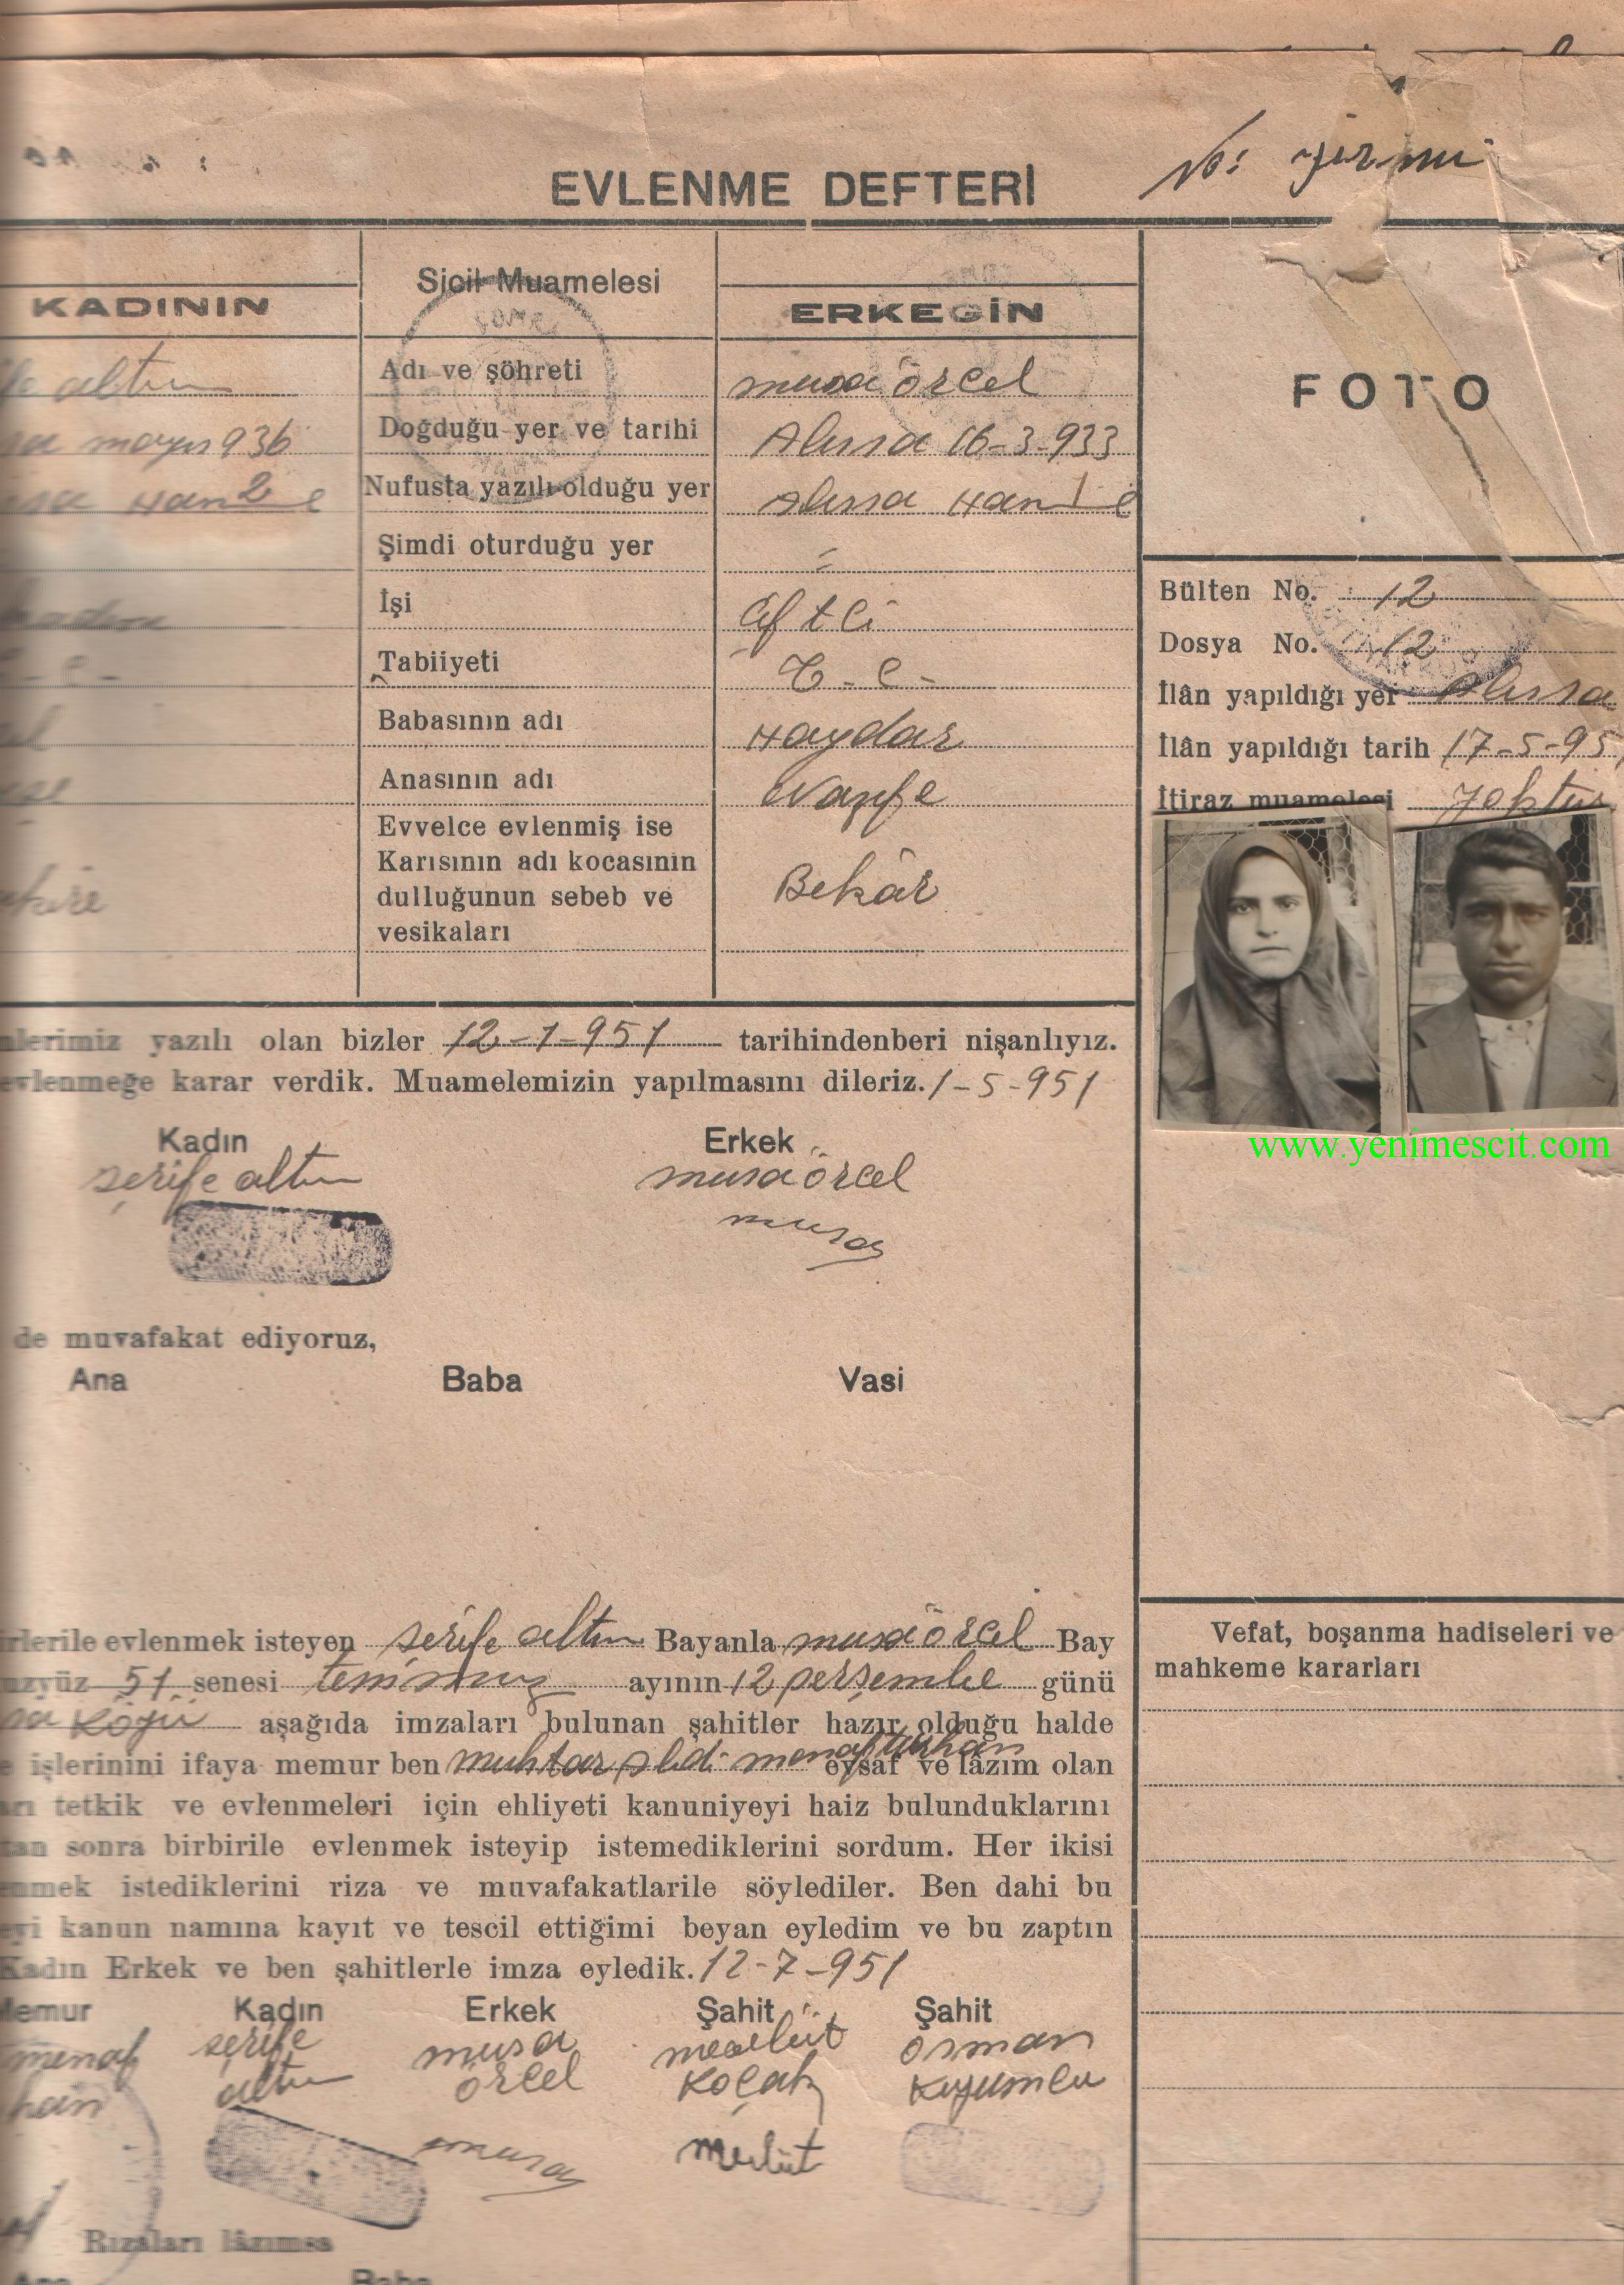 No: yirmi
EVLENME DEFTERİ
KADININ
Sicil Muamelesi
ERKEGİN
FOTO
altun
Adı ve şöhreti
musa örcel
mayıs 936
Doğduğu yer ve tarihi
Alısa 16-3-933
Han 2 e
Nufusta yazılı olduğu yer
Alısa Han 1 e
Şimdi oturduğu yer
İşi
Çiftci
Tabiiyeti
T-C-
Babasının adı
Haydar
Anasının adı
Evvelce evlenmiş ise
Karısının adı kocasının
dulluğunun sebeb ve
vesikaları
Bekâr
Bülten No. 12
Dosya No. 12
İlân yapıldığı yer Alısa
İlân yapıldığı tarih 17-5-95
İtiraz muamelesi Yoktur
www.yenimescit.com
yazılı olan bizler 12-1-951 tarihindenberi nişanlıyız.
evlenmeğe karar verdik. Muamelemizin yapılmasını dileriz. 1-5-951
Kadın Erkek
şerife altun musa örcel
musa
de muvafakat ediyoruz,
Ana Baba Vasi
evlenmek isteyen şerife altun Bayanla musa örcel Bay
51 senesi temmuz ayının 12 perşembe günü
köyü aşağıda imzaları bulunan şahitler hazır olduğu halde
işlerinini ifaya memur ben muhtar menaf evsaf ve lâzım olan
tetkik ve evlenmeleri için ehliyeti kanuniyeyi haiz bulunduklarını
sonra birbirile evlenmek isteyip istemediklerini sordum. Her ikisi
istediklerini riza ve muvafakatlarile söylediler. Ben dahi bu
kanun namına kayıt ve tescil ettiğimi beyan eyledim ve bu zaptın
Kadın Erkek ve ben şahitlerle imza eyledik. 12-7-951
Memur Kadın Erkek Şahit Şahit
menaf şerife musa mevlüt osman
altun örcel koçak kuyumcu
musa mevlüt
Rızaları lâzımsa
Ana Baba
Vefat, boşanma hadiseleri ve
mahkeme kararları